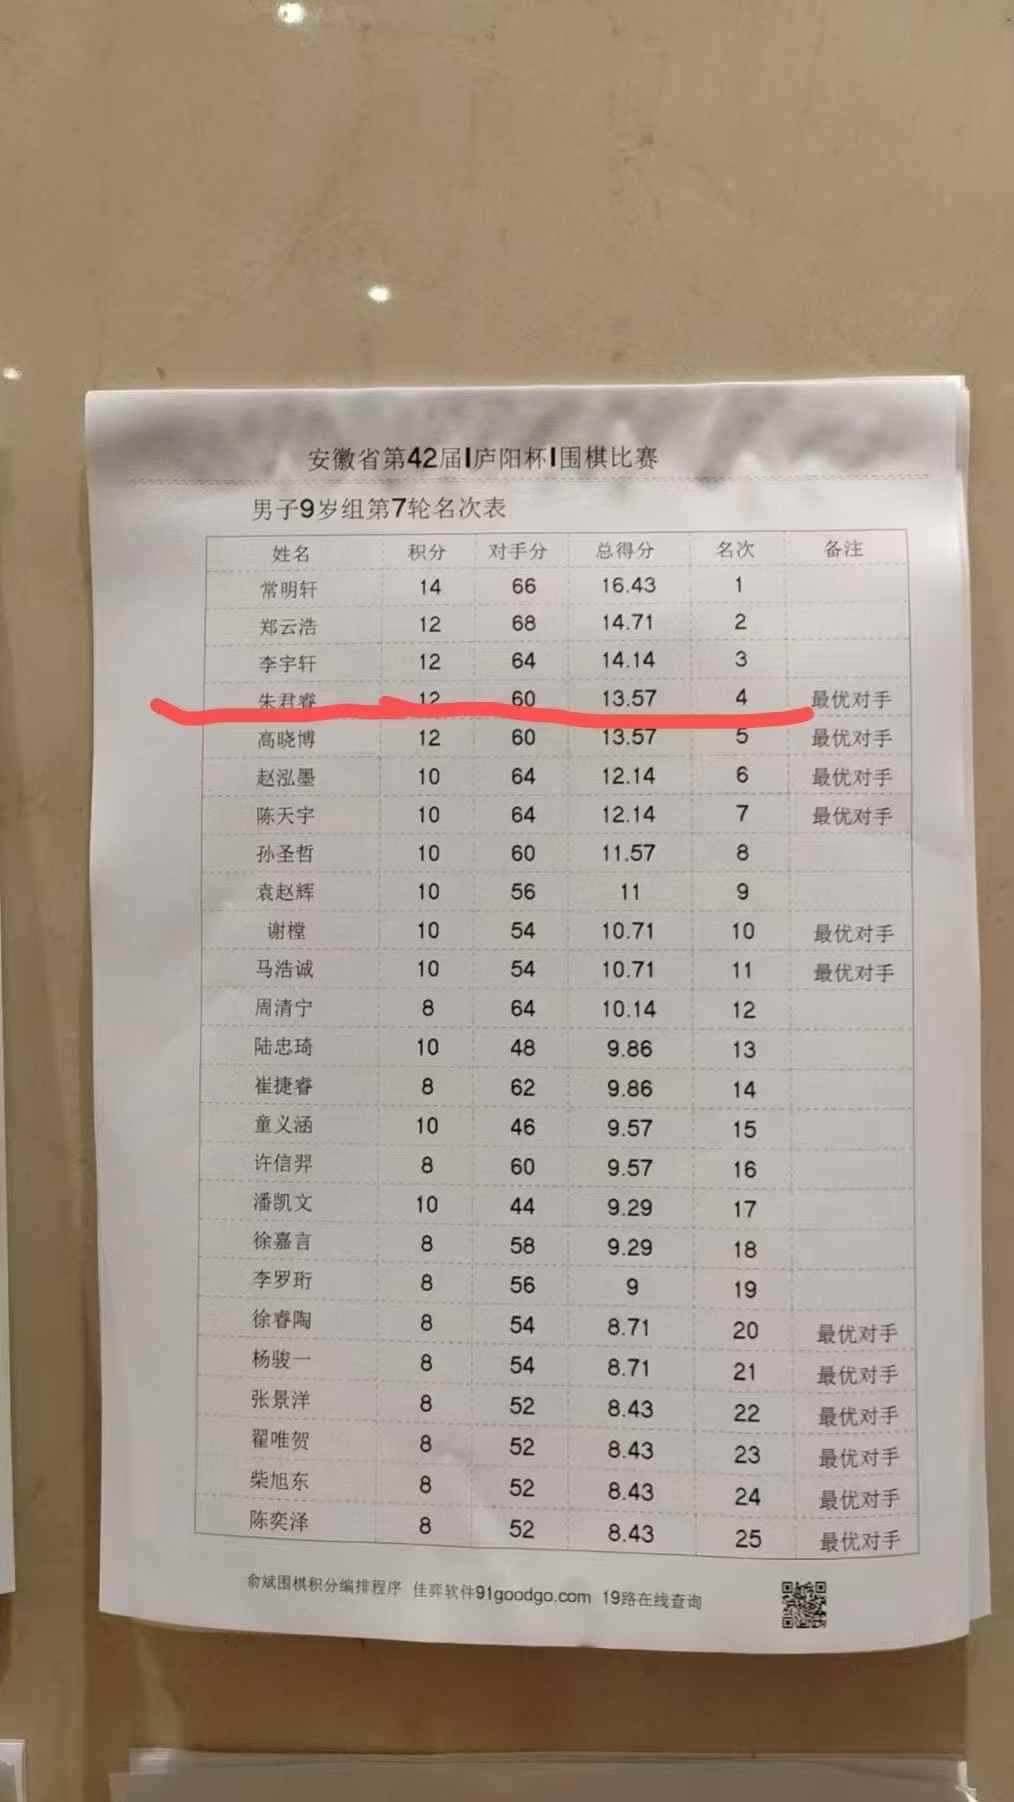 安徽省第42届|庐阳杯|围棋比赛
男子9岁组第7轮名次表
姓名 积分 对手分 总得分 名次 备注
常明轩 14 66 16.43 1
郑云浩 12 68 14.71 2
李宇轩 12 64 14.14 3
朱君睿 12 60 13.57 4 最优对手
高晓博 12 60 13.57 5 最优对手
赵泓墨 10 64 12.14 6 最优对手
陈天宇 10 64 12.14 7 最优对手
孙圣哲 10 60 11.57 8
袁赵辉 10 56 11 9
谢樘 10 54 10.71 10 最优对手
马浩诚 10 54 10.71 11 最优对手
周清宁 8 64 10.14 12
陆忠琦 10 48 9.86 13
崔捷睿 8 62 9.86 14
童义涵 10 46 9.57 15
许信羿 8 60 9.57 16
潘凯文 10 44 9.29 17
徐嘉言 8 58 9.29 18
李罗珩 8 56 9 19
徐睿陶 8 54 8.71 20 最优对手
杨骏一 8 54 8.71 21 最优对手
张景洋 8 52 8.43 22 最优对手
翟唯贺 8 52 8.43 23 最优对手
柴旭东 8 52 8.43 24 最优对手
陈奕泽 8 52 8.43 25 最优对手
俞斌围棋积分编排程序 佳弈软件91goodgo.com 19路在线查询